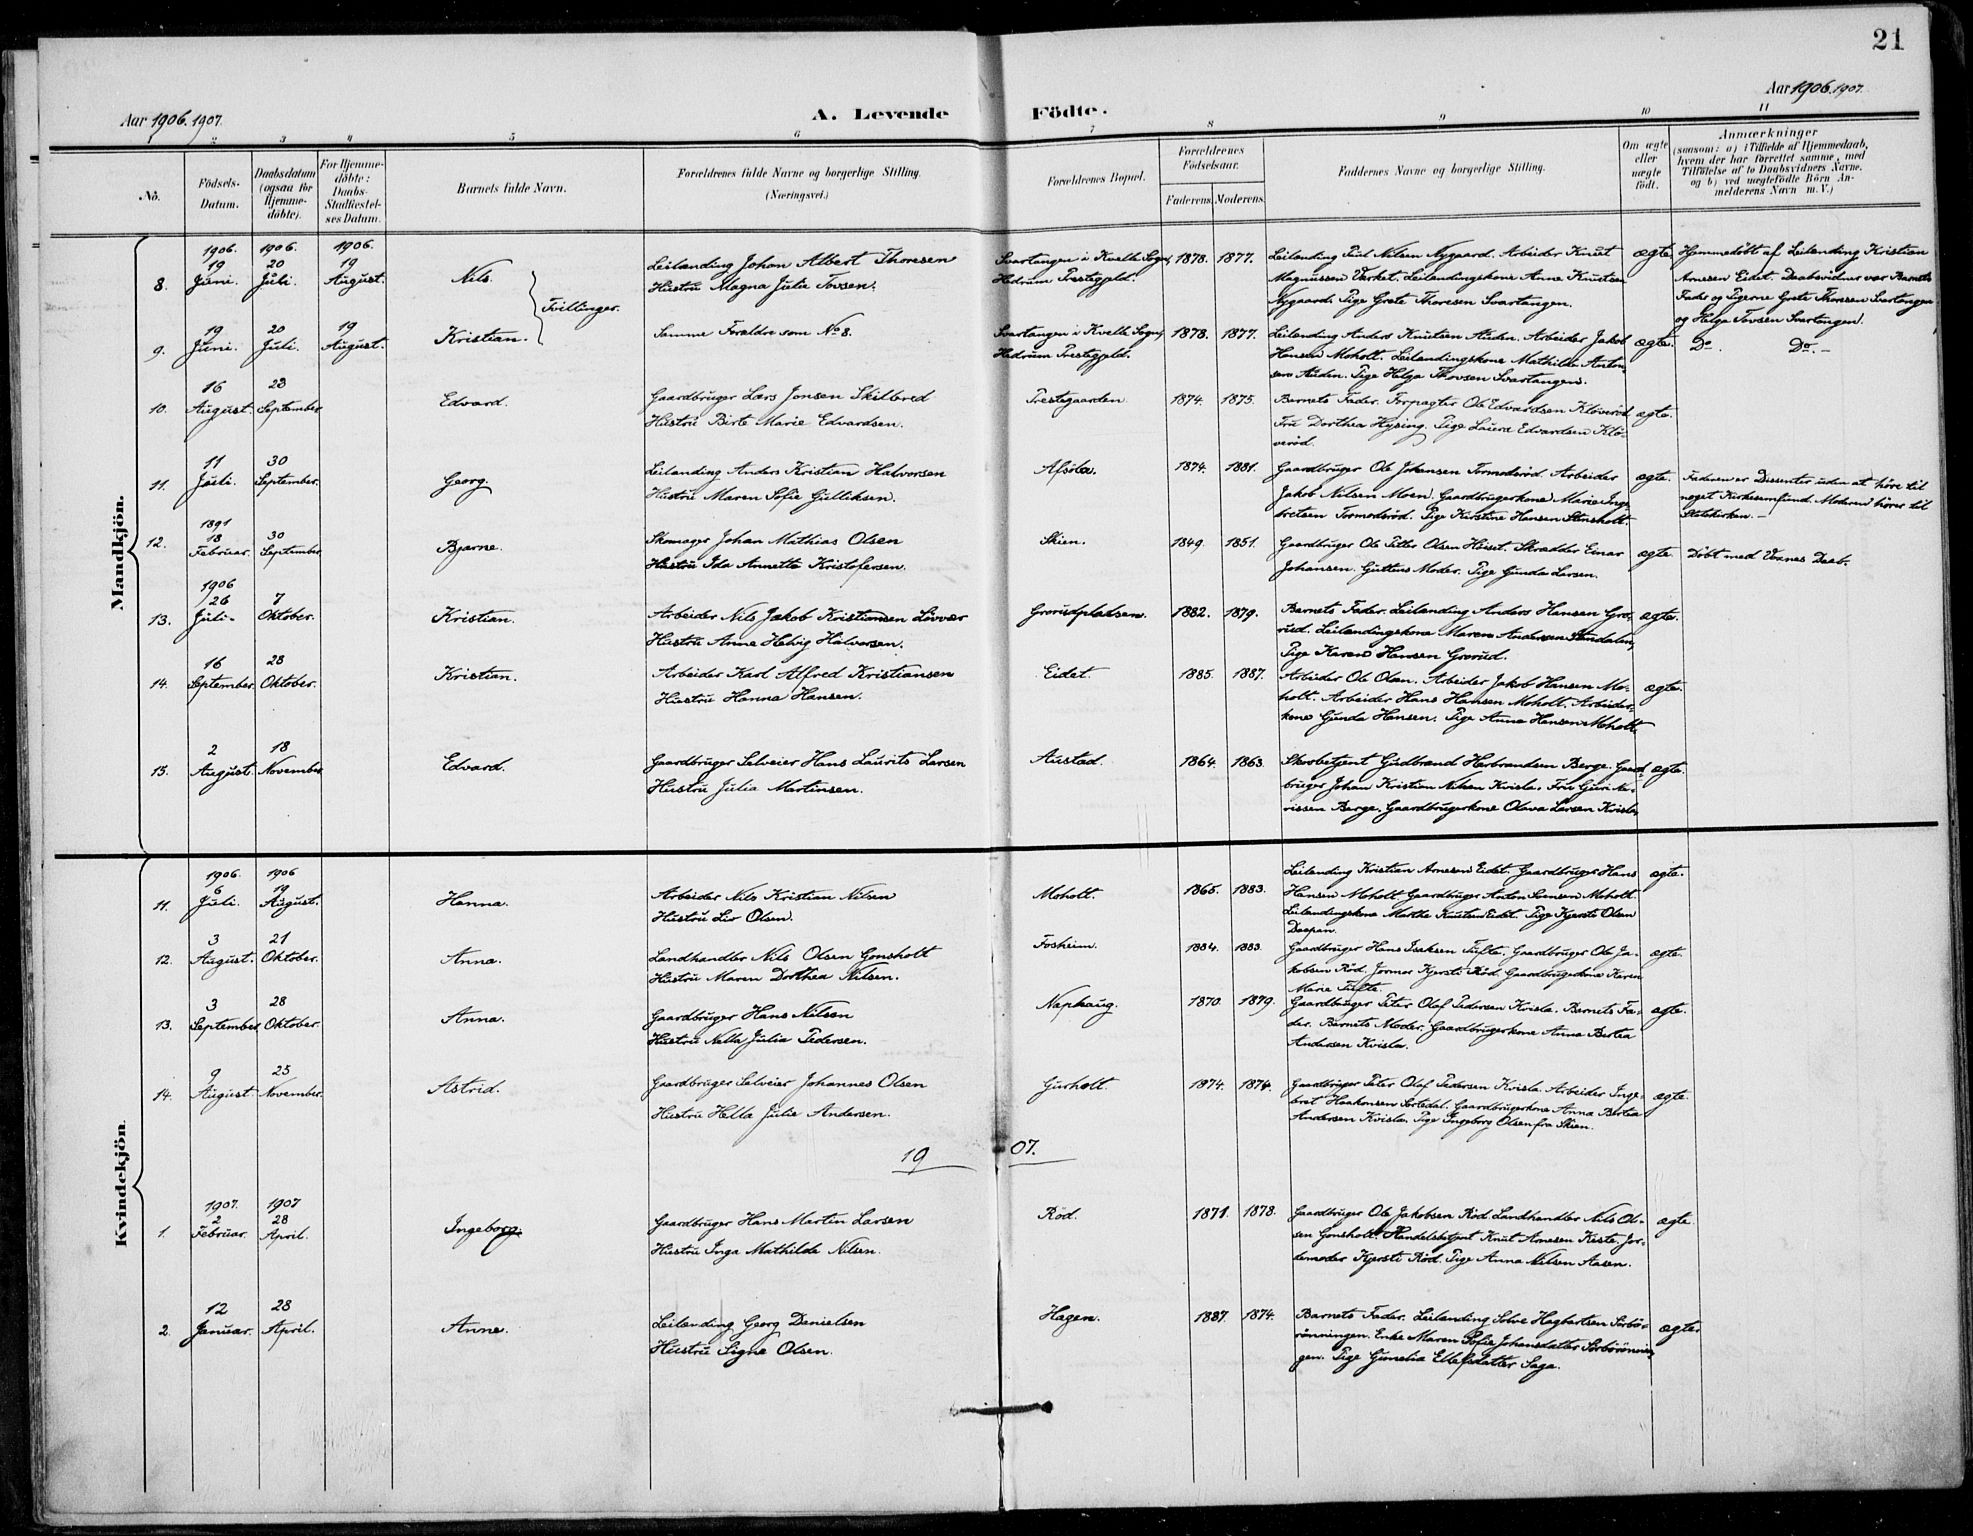 21
Aar 1906. 1907.
A. Levende
Födte.
Aar 1906. 1907.
2 3 4 5 6 7 8 9 10 11
No.
Födsels-
Datum.
Daabsdatum
(ogsaa for
Hjemme-
döbte).
For Hjemme-
döbte:
Daabs-
Stadfæstel-
ses Datum.
Barnets fulde Navn.
Forældrenes fulde Navne og borgerlige Stilling.
(Næringsvei.)
Forældrenes Bopæl.
Forældrenes
Födselsaar.
Faderens. Moderens.
Faddernes Navne og borgerlige Stilling.
Om ægte
eller
uægte
födt.
Anmærkninger
(saasom: a) i Tilfælde af Hjemmedaab,
hvem der har forrettet samme, med
Tilföielse af to Daabsvidners Navne.
og b) ved uægtefödte Börn An-
melderens Navn m. V.)
Mandkjön.
1906. 1906. 1906.
8. 19 Juni. 20 Juli. 19 August. Nils. Tvillinger.
Leilænding Johan Albert Thoresen
Hustru Magna Julie Tovsen.
Svartangen i Kvelle Sogn,
Hedrum Prestegjeld.
1878. 1877.
Leilænding Paul Nilsen Nygaard. Arbeider Knut
Magnussen Verket. Leilændingskone Anne Knutsen
Nygaard. Pige Grete Thoresen Svartangen.
ægte.
Hjemmedöbt af Leilænding Kristian
Arnesen Eidet. Daabsvidner var Barnets
Fader og Pigerne Grete Thoresen Svartangen
og Helga Tovsen Svartangen.
9. 19 Juni. 20 Juli. 19 August. Kristian.
Samme Forældre som No 8.
Svartangen i Kvelle Sogn,
Hedrum Prestegjeld.
1878. 1877.
Leilænding Anders Knutsen Auden. Arbeider Jakob
Hansen Moholt. Leilændingskone Mathilde Anton-
sen Auden. Pige Helga Thovsen Svartangen.
ægte.
Do. Do. -
10. 16 August. 23 September. Edvard.
Gaardbruger Lars Jonsen Skilbred
Hustru Birte Marie Edvardsen.
Prestegaarden
1874. 1875.
Barnets Fader. Forpagter Ole Edvardsen Klöveröd
Fru Dorthea Hysing. Pige Laura Edvardsen Klö-
veröd.
ægte.
11. 11 Juli. 30 September. Georg.
Leilænding Anders Kristian Halvorsen
Hustru Maren Sofie Gulliksen.
1874. 1881.
Gaardbruger Ole Johansen Tormodsröd. Arbeider
Jakob Nilsen Moen. Gaardbrugerkone Marie Inge-
bretsen Tormodsröd. Pige Kirstine Hansen Stensholt
ægte.
Faderen er Dissenter uden at höre til
noget Kirkesamfund. Moderen hörer til
Statskirken. -
12. 1891 18 Februar. 30 September. Bjarne.
Skomager Johan Mathias Olsen
Hustru Ida Annette Kristofersen.
Skien.
1849. 1851.
Gaardbruger Ole Petter Olsen Höiset. Skrædder Einar
Johansen. Guttens Moder. Pige Gunda Larsen.
ægte.
Döbt med Voxnes Daab.
13. 1906 26 Juli. 7 Oktober. Kristian.
Arbeider Nils Jakob Kristiansen Lövvær
Hustru Anne Helvig Halvorsen.
Grorudpladsen.
1882. 1879.
Barnets Fader. Leilænding Anders Hansen Gro-
rud. Leilændingskone Maren Andersen Stendalen,
Pige Karen Hansen Grorud.
ægte.
14. 16 September. 28 Oktober. Kristian.
Arbeider Karl Alfred Kristiansen
Hustru Hanna Hansen.
Eidet.
1885. 1887.
Arbeider Ole Olsen. Arbeider Jakob Hansen Mo-
holt. Arbeider Hans Hansen Moholt. Arbeider-
kone Gunda Hansen. Pige Anna Hansen Moholt.
ægte.
15. 2 August. 18 November. Edvard.
Gaardbruger Selveier Hans Laurits Larsen
Hustru Julia Martinsen.
Austad.
1864. 1863.
Skovbetjent Gudbrand Herbrandsen Berge. Gaard-
bruger Johan Kristian Nilsen Kvisla. Fru Guri Au-
rissen Berge. Gaardbrugerkone Olava Larsen Kvisla.
ægte.
Kvindekjön.
11. 1906. 6 Juli. 1906 19 August. Hanna.
Arbeider Nils Kristian Nilsen
Hustru Lor Olsen.
Moholt.
1865. 1883.
Leilænding Kristian Arnesen Eidet. Gaardbruger Hans
Hansen Moholt. Gaardbruger Anton Simsen Moholt.
Leilændingskone Marthe Knutsen Eidet. Pige Kjersti Olsen
ægte.
12. 3 August. 21 Oktober. Anna.
Landhandler Nils Olsen Gonsholt
Hustru Maren Dorthea Nilsen.
Fosheim.
1884. 1883.
Gaardbruger Hans Isaksen Tufte. Gaardbruger Ole Ja-
kobsen Röd. Jormor Kjersti Röd. Gaardbrugerkone Karen
Marie Tufte.
ægte.
13. 3 September. 28 Oktober. Anna.
Gaardbruger Hans Nilsen
Hustru Nella Julia Pedersen.
Naphaug.
1870. 1879.
Gaardbruger Peter Olaf Pedersen Kvisla. Barnets Fa-
der. Barnets Moder. Gaardbrugerkone Anna Bertea
Andersen Kvisla.
ægte.
14. 9 August. 25 November. Astrid.
Gaardbruger Selveier Johannes Olsen
Hustru Hella Julie Andersen.
Gurholt.
1874. 1874.
Gaardbruger Peter Olaf Pedersen Kvisla. Arbeider Inge-
bret Haakonsen Sortedal. Gaardbrugerkone Anna Bertea
Andersen Kvisla. Pige Ingeborg Olsen fra Skien.
ægte.
19 07.
1. 1907. 2 Februar. 1907 28 April. Ingeborg.
Gaardbruger Hans Martin Larsen
Hustru Inga Mathilde Nilsen.
Röd.
1871. 1878.
Gaardbruger Ole Jakobsen Röd. Landhandler Nils Ol-
sen Gonsholt. Handelsbetjent Knut Arnesen Keste. Jor-
demoder Kjersti Röd. Pige Anna Nilsen Aasen.
ægte.
2. 12 Januar. 28 April. Anne.
Leilænding Georg Danielsen
Hustru Signe Olsen.
Hagen.
1887. 1874.
Barnets Fader. Leilænding Solve Hagbartsen Sörbö-
rönningen. Enke Maren Sofie Johansdatter Sörbörönnin-
gen. Pige Gunelia Ellefsdatter Saga.
ægte.